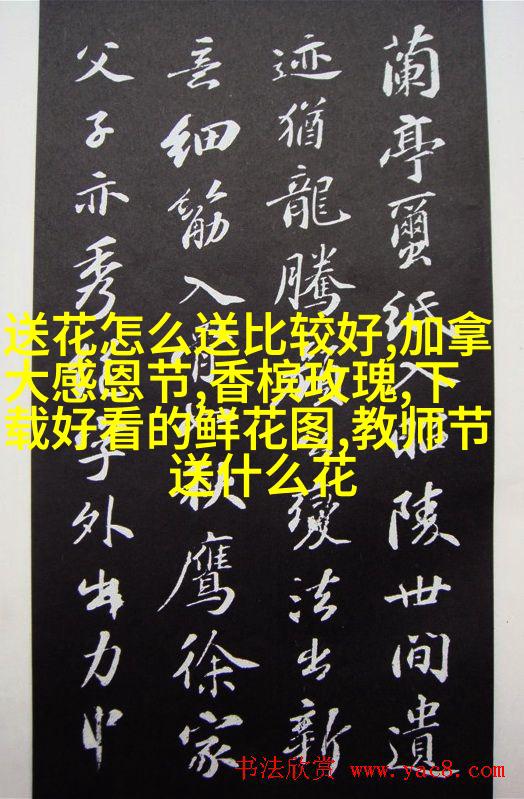 送花怎么送比较好,加拿
大感恩节,香槟玫瑰,下
载好看的鲜花图,教师节
送什么花
蘭亭蠒紙入昭陵世間遺
迹猶龍騰變法出新
意細筋入骨秋鷹徐家
父子亦秀字外出力中
书法欣赏 www.yac8.com